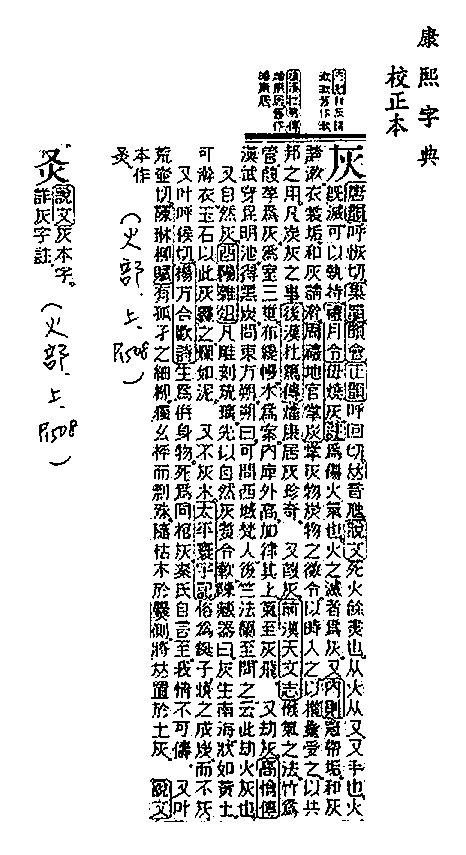 康熙字典
校正本
灰
唐韻呼恢切集韻韻會正韻呼回切𠀤音虺說文死火餘烬也从火从又又手也火
旣滅可以執持禮月令毋燒灰註爲傷火氣也火之滅者爲灰又內則冠帶垢和灰
請漱衣裳垢和灰請澣周禮地官掌炭掌灰物炭物之徵令以時入之以權量受之以共
邦之用凡炭灰之事後漢杜篤傳燔康居灰珍奇 又候灰前漢天文志候氣之法竹爲
管葭莩爲灰密室三重布緹幔木爲案內庳外高加律其上氣至灰飛 又劫灰高僧傳
漢武穿昆明池得黑炭問東方朔朔曰可問西域梵人後竺法蘭至問之云此劫火灰也
又自然灰酉陽雜俎凡雕刻琉璃先以自然灰煑令軟陳藏器曰灰生南海狀如黃土
可澣衣玉石以此灰霾之爛如泥 又不灰木太平寰宇記俗爲鋌子燒之成炭而不灰
又叶呼候切楊方合歡詩生爲倂身物死爲同棺灰秦氏自言至我情不可儔 又叶
荒壺切陳琳柳賦有孤孑之細柳獨幺梓而剽殊隨枯木於爨側將幷置於土灰 說文
本作
𤆆
(火部.上.P.508)
𤆆
說文灰本字
詳灰字註
(火部.上.P.508)